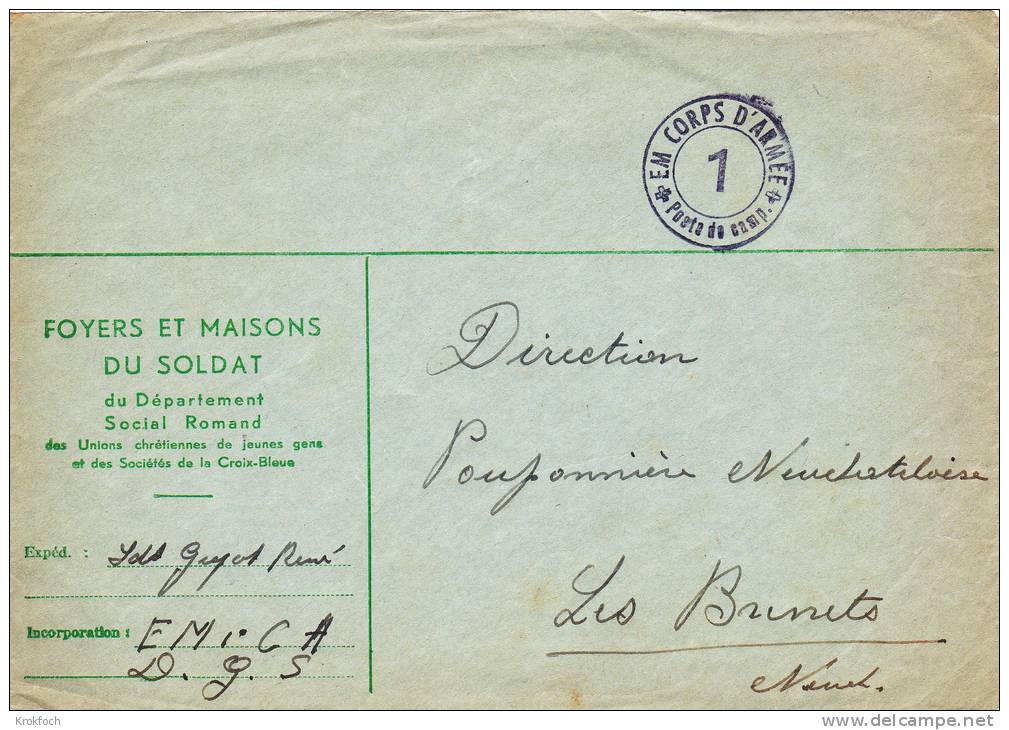 EM CORPS D'ARMÉE
1
Poste de camp.
FOYERS ET MAISONS
DU SOLDAT
du Département
Social Romand
des Unions chrétiennes de jeunes gens
et des Sociétés de la Croix-Bleue
Expéd. : Sdt Guyot René
Incorporation : E M 1. C A
D. G. S
Direction
Pouponnière Neuchateloise
Les Brenets
Neuch.
Krokfoch
www.delcampe.net